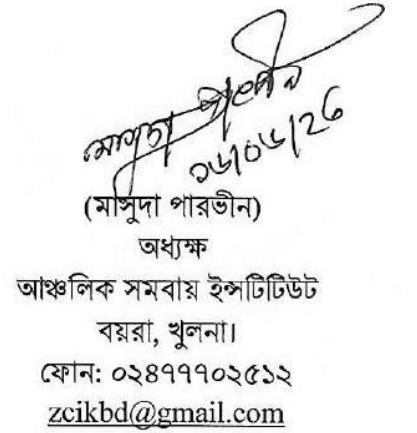 মাসুদা পারভীন
১৬/০৬/26
(মাসুদা পারভীন)
অধ্যক্ষ
আঞ্চলিক সমবায় ইন্সটিটিউট
বয়রা, খুলনা।
ফোন: ০২৪৭৭৭০২৫১২
zcikbd@gmail.com